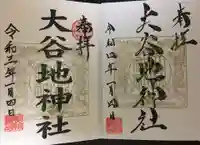 奉拝
大谷地神社
令和三年一月四日
奉拝
大谷地神社
令和四年一月四日